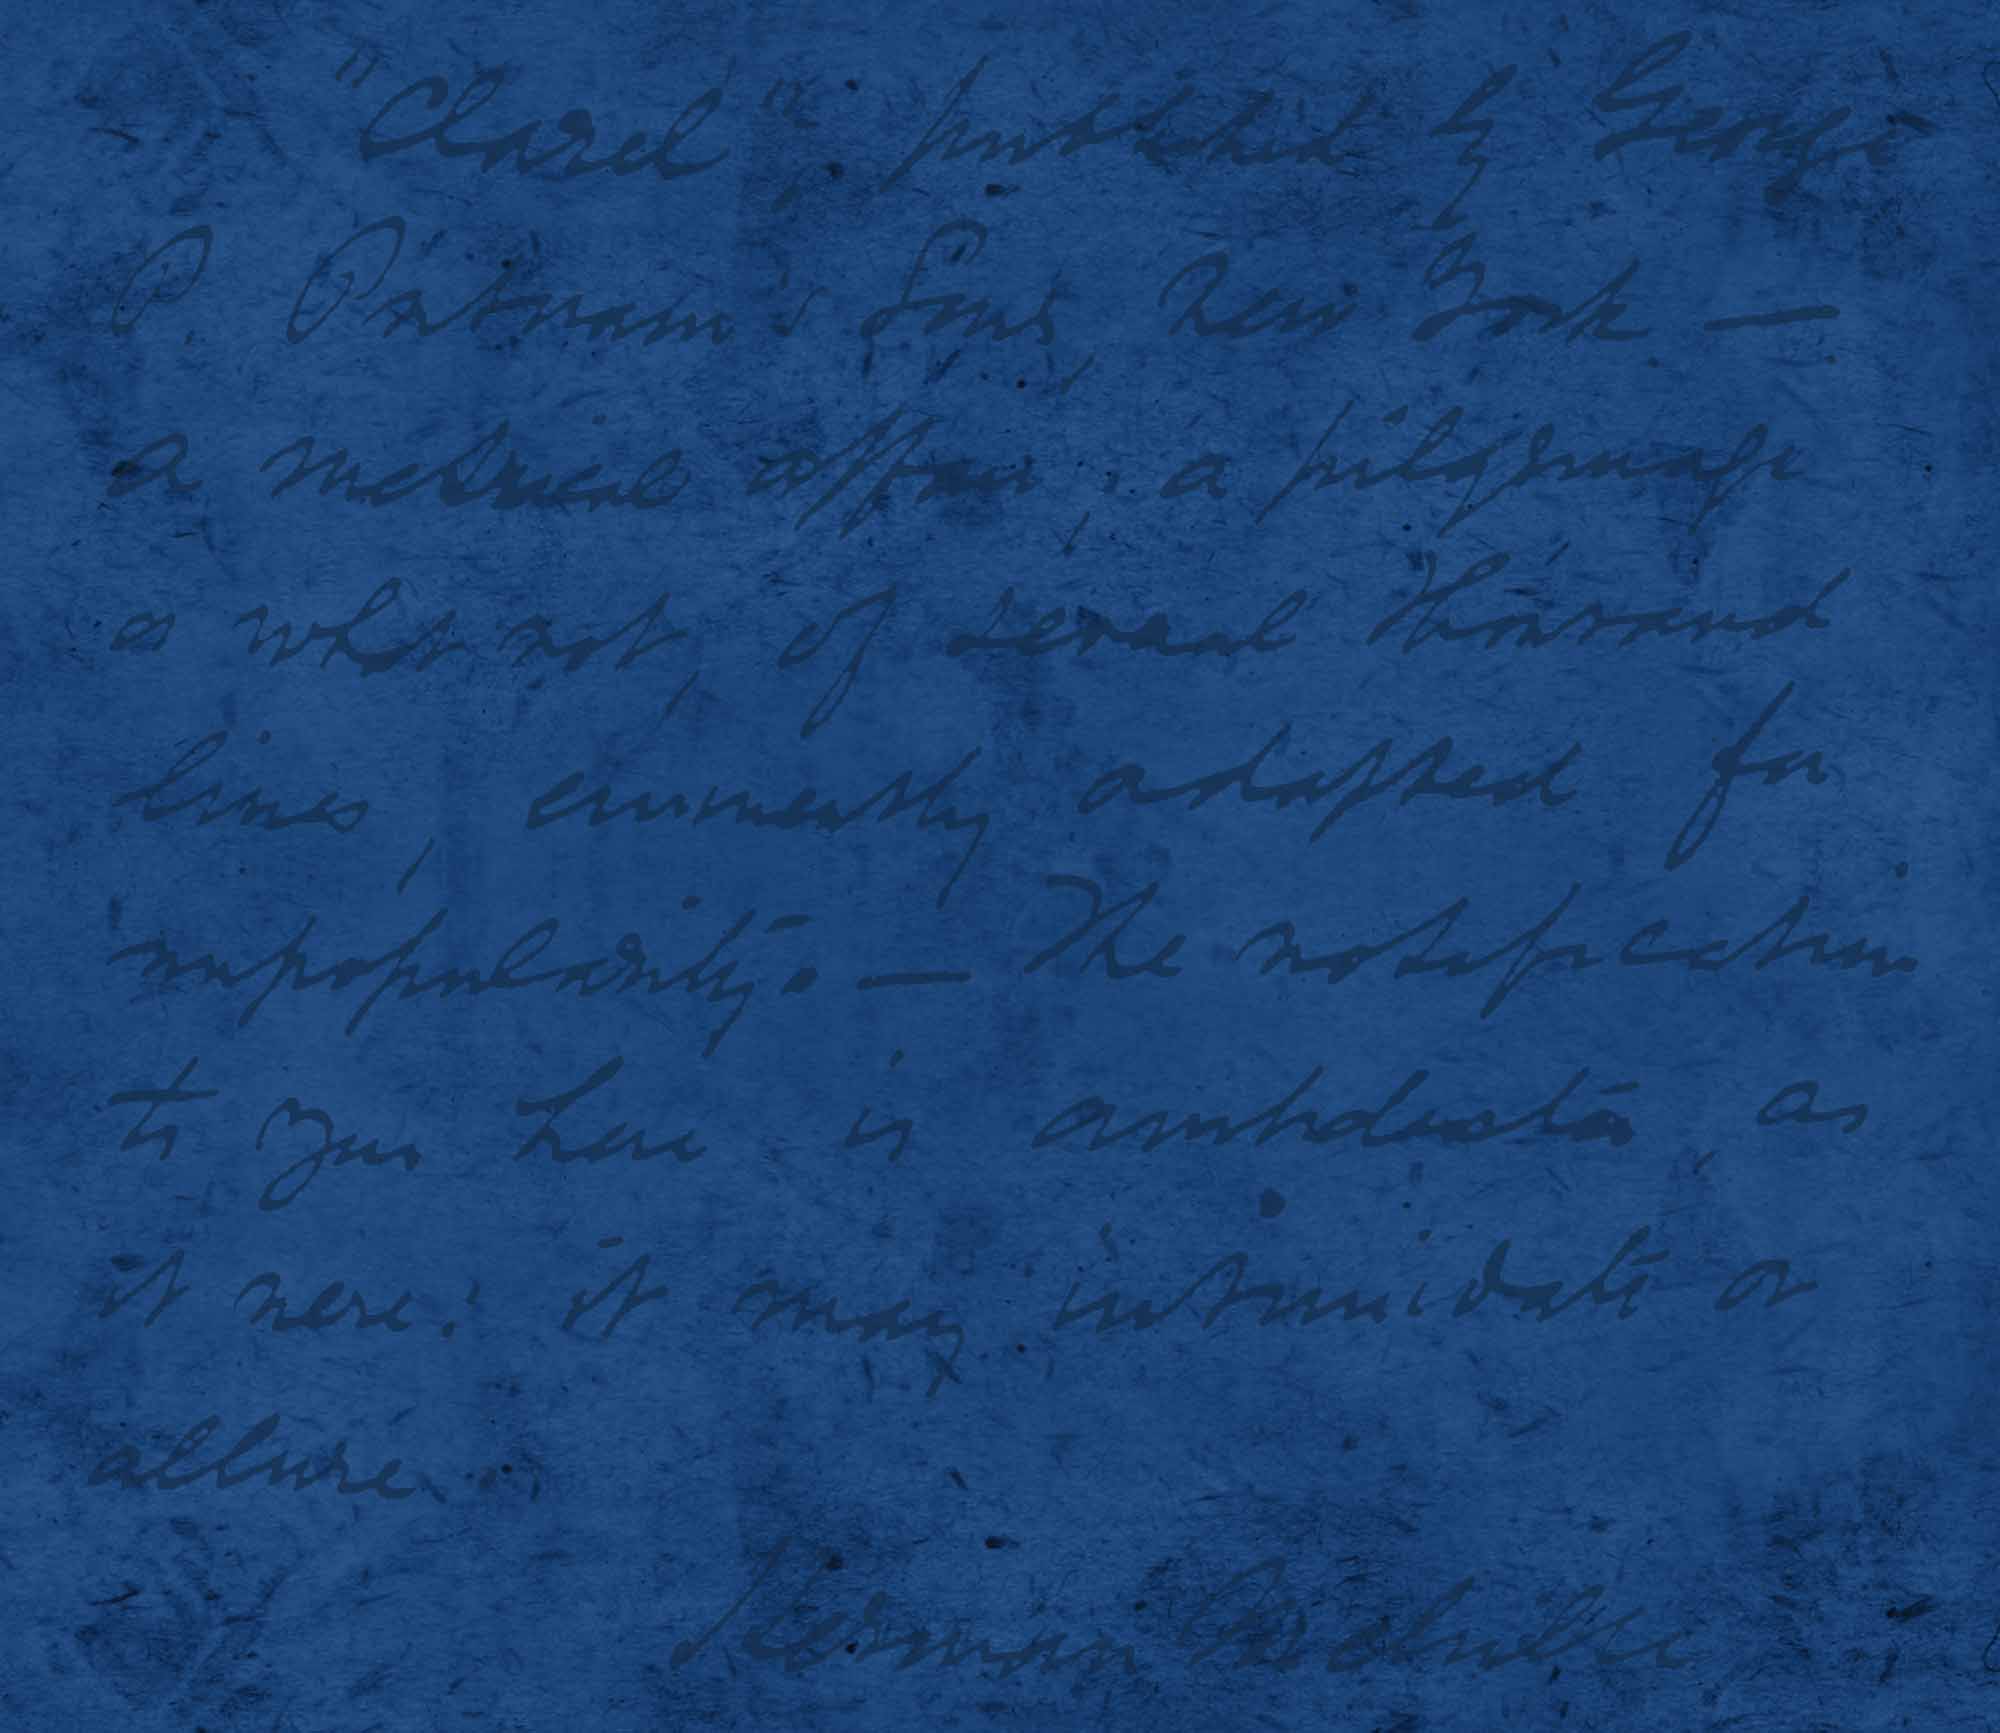 "Clarel," published by George
P. Putnam's Sons, New York —
a metrical affair, a pilgrimage
or what not, of several thousand
lines, eminently adapted for
unpopularity. — The notification
to you here is ambidexter, as
it were: it may intimidate or
allure.
Herman Melville